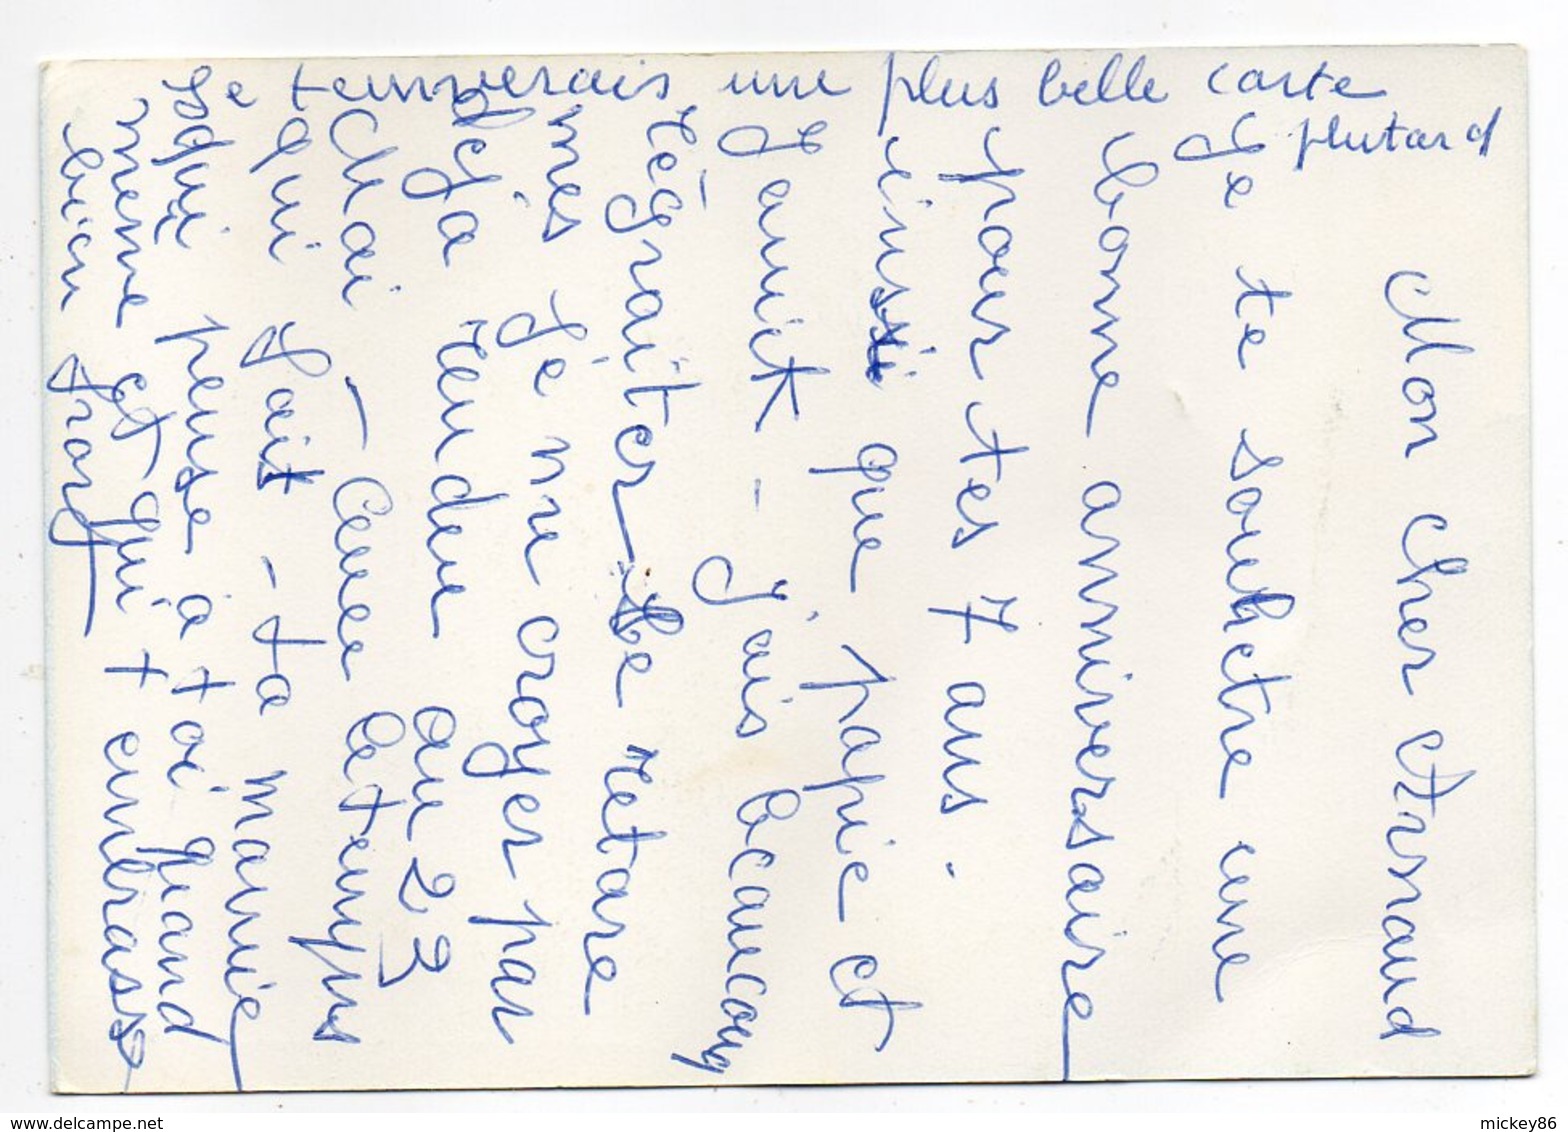 Mon cher Arnaud
Je te souhctre une
bonne anniversaire
pour tes 7 ans.
insi que papie et
Janit - j'ais beaucoup
régraiter le retare
mes je ne croyer pas
deja rendue au 23
Mai - Ceue le temps
qui fait - ta mamie
qui pense a toi quand
meme et qui t embrasse
bien fort
Je teunverais une plus belle carte
plutard
www.delcampe.net
mickey86